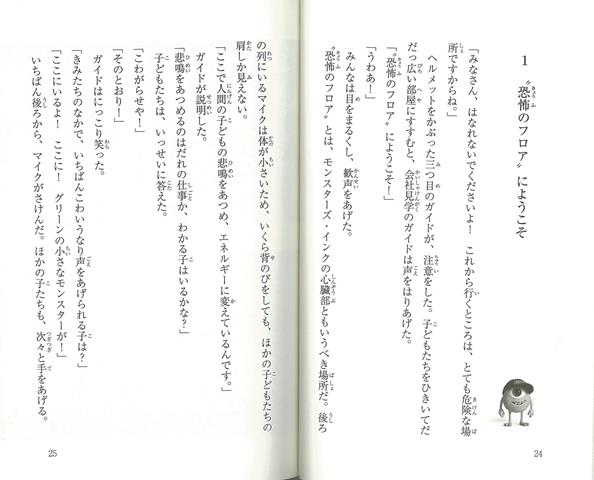 1 〝恐怖のフロア〟にようこそ
「みなさん、はなれないでくださいよ！　これから行くところは、とても危険な場
所ですからね。」
ヘルメットをかぶった三つ目のガイドが、注意をした。子どもたちをひきいてだ
だっ広い部屋にすすむと、会社見学のガイドは声をはりあげた。
「〝恐怖のフロア〟にようこそ！」
「うわあ！」
みんなは目をまるくし、歓声をあげた。
〝恐怖のフロア〟とは、モンスターズ・インクの心臓部ともいうべき場所だ。後ろ
24
の列にいるマイクは体が小さいため、いくら背のびをしても、ほかの子どもたちの
肩しか見えない。
「ここで人間の子どもの悲鳴をあつめ、エネルギーに変えているんです。」
ガイドが説明した。
「悲鳴をあつめるのはだれの仕事か、わかる子はいるかな？」
子どもたちは、いっせいに答えた。
「こわがらせや！」
「そのとおり！」
ガイドはにっこり笑った。
「きみたちのなかで、いちばんこわいうなり声をあげられる子は？」
「ここにいるよ！　ここに！　グリーンの小さなモンスターが！」
いちばん後ろから、マイクがさけんだ。ほかの子たちも、次々と手をあげる。
25